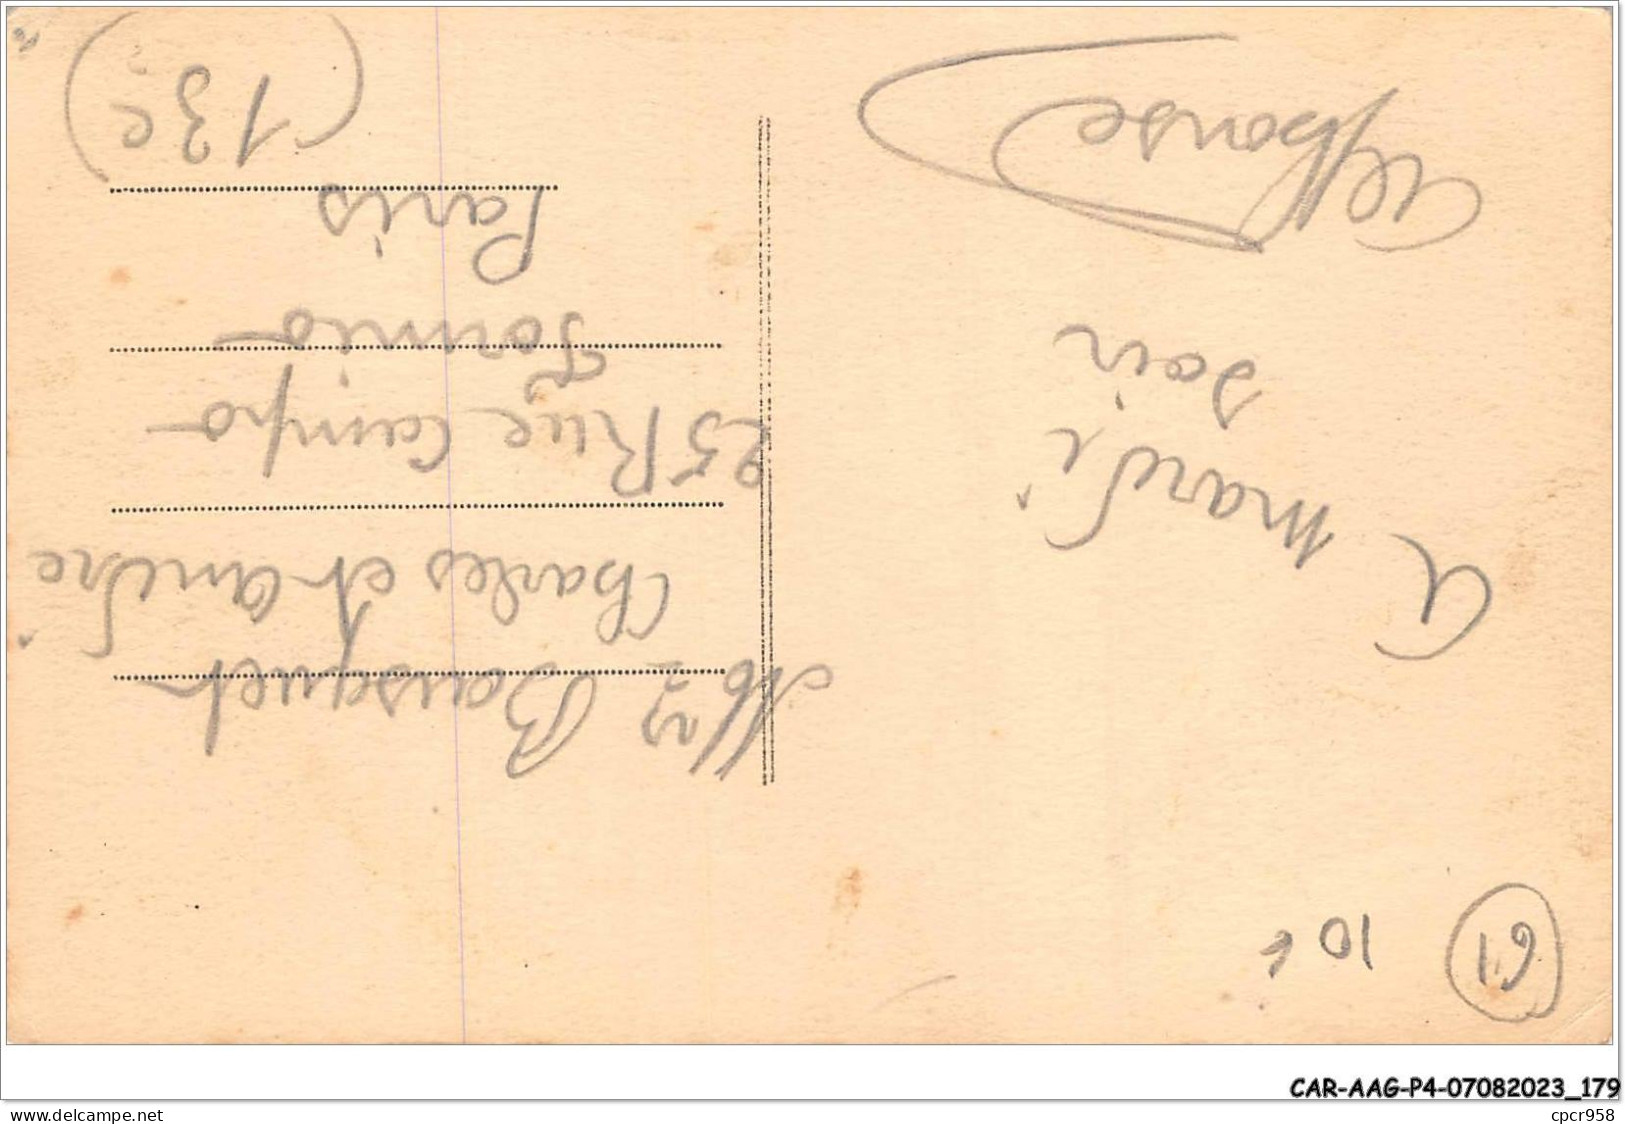 (61) 10 f
A mardi
soir
Alphonse
Mrs Bousquet
Charles et André
25 Rue Campo-
Formio-
Paris
(13e)
CAR-AAG-P4-07082023_179
www.delcampe.net
cpcr958